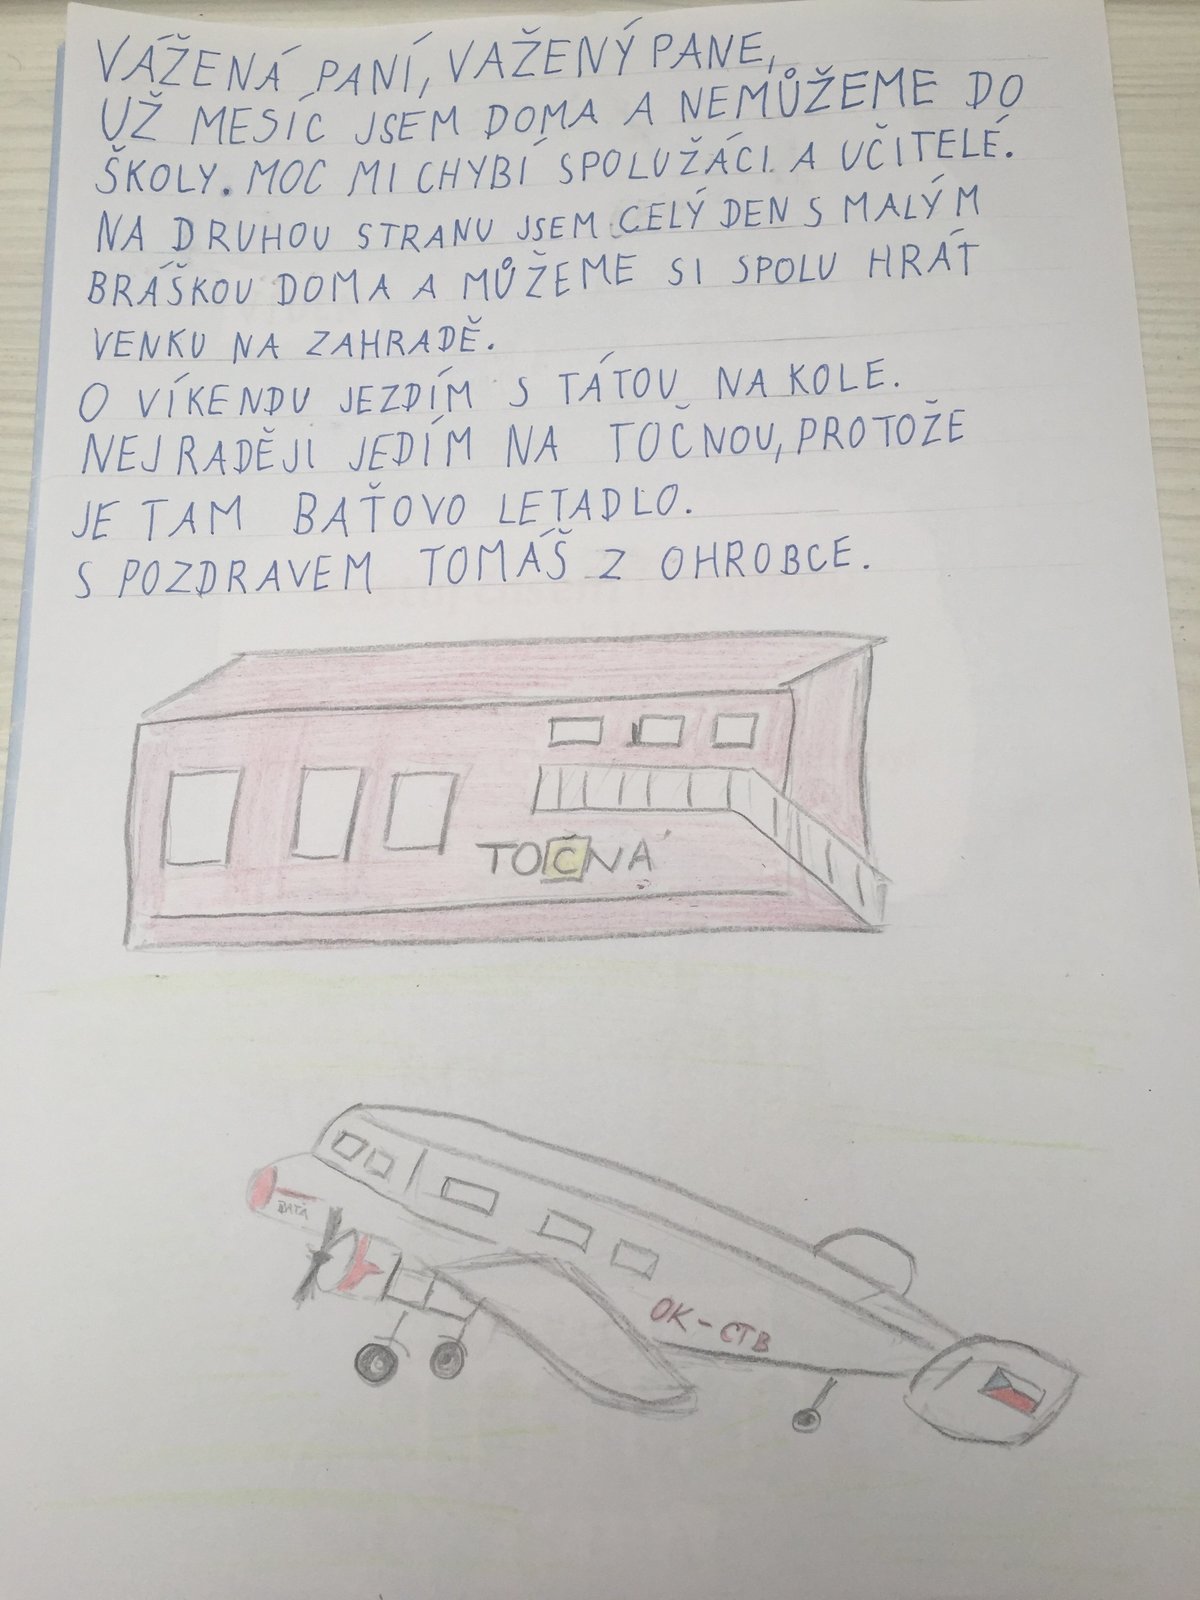 VÁŽENÁ PANÍ, VAŽENÝ PANE,
UŽ MESÍC JSEM DOMA A NEMŮŽEME DO
ŠKOLY. MOC MI CHYBÍ SPOLUŽÁCI A UČITELÉ.
NA DRUHOU STRANU JSEM CELÝ DEN S MALÝM
BRÁŠKOU DOMA A MŮŽEME SI SPOLU HRÁT
VENKU NA ZAHRADĚ.
O VÍKENDU JEZDÍM S TÁTOU NA KOLE.
NEJRADĚJI JEDÍM NA TOČNOU, PROTOŽE
JE TAM BAŤOVO LETADLO.
S POZDRAVEM TOMÁŠ Z OHROBCE.
TOČNÁ
BAŤA
OK-CTB